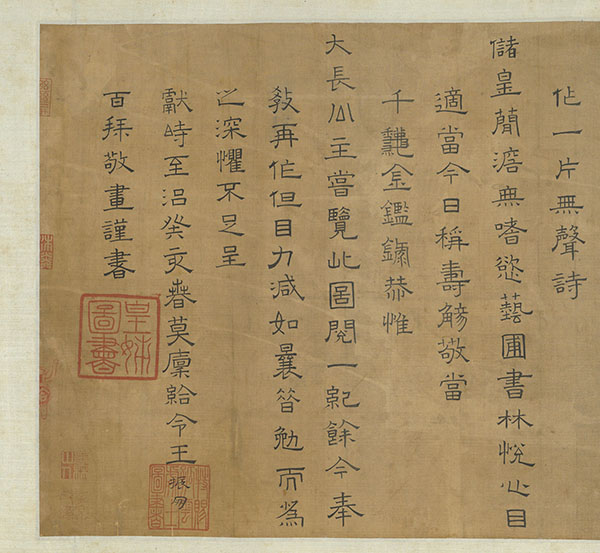 作一片無聲詩
儲皇簡澹無嗜慾藝圃書林悅心目
適當今日稱壽觴敬當
千龝金鑑錄恭惟
大長公主嘗覽此圖閱一紀餘今奉
教再作但目力減如曩昔勉而爲
之深懼不足呈
獻時至治癸亥春莫廩給令王振朋
百拜敬畫謹書
皇姊圖書